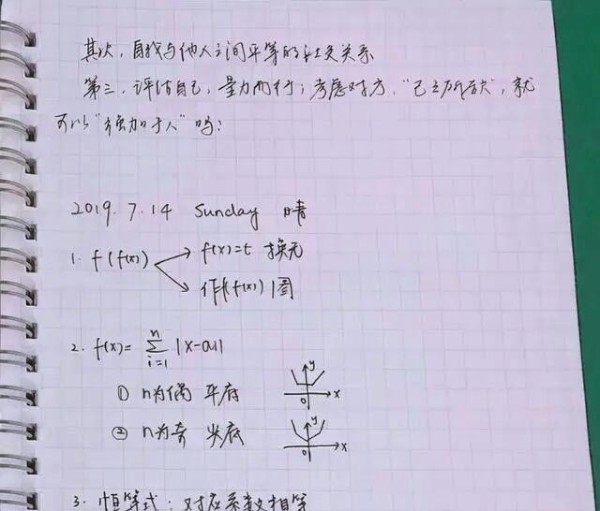 其次,自我与他人之间平等的社交关系
第三,评估自己,量力而行;考虑对方,“己之所欲”,就
可以“强加于人”吗?
2019.7.14 Sunday 晴
1. f(f(x))
f(x)=t 换元
作f(x)图
2. f(x)= n∑i=1 |x-ai|
① n为偶 平底
y
0
x
② n为奇 尖底
y
0
x
3. 恒等式:对应系数相等